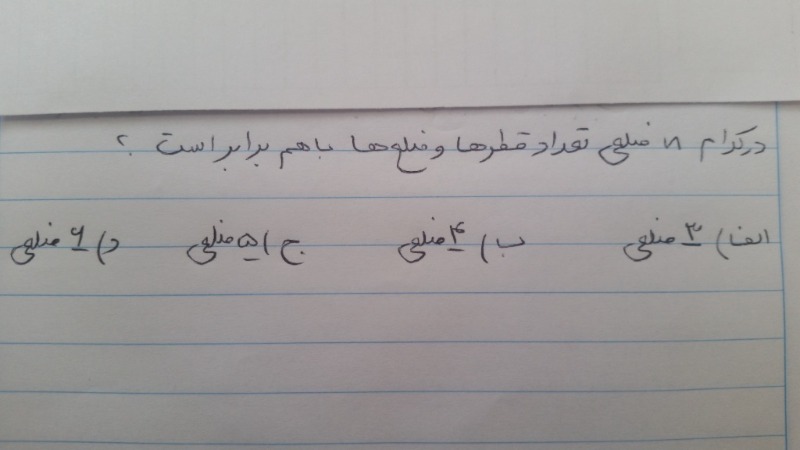 در کدام n ضلعی تعداد قطرها و ضلع‌ها باهم برابر است ؟
الف) ۳ ضلعی ب) ۴ ضلعی ج) ۵ ضلعی د) ۶ ضلعی